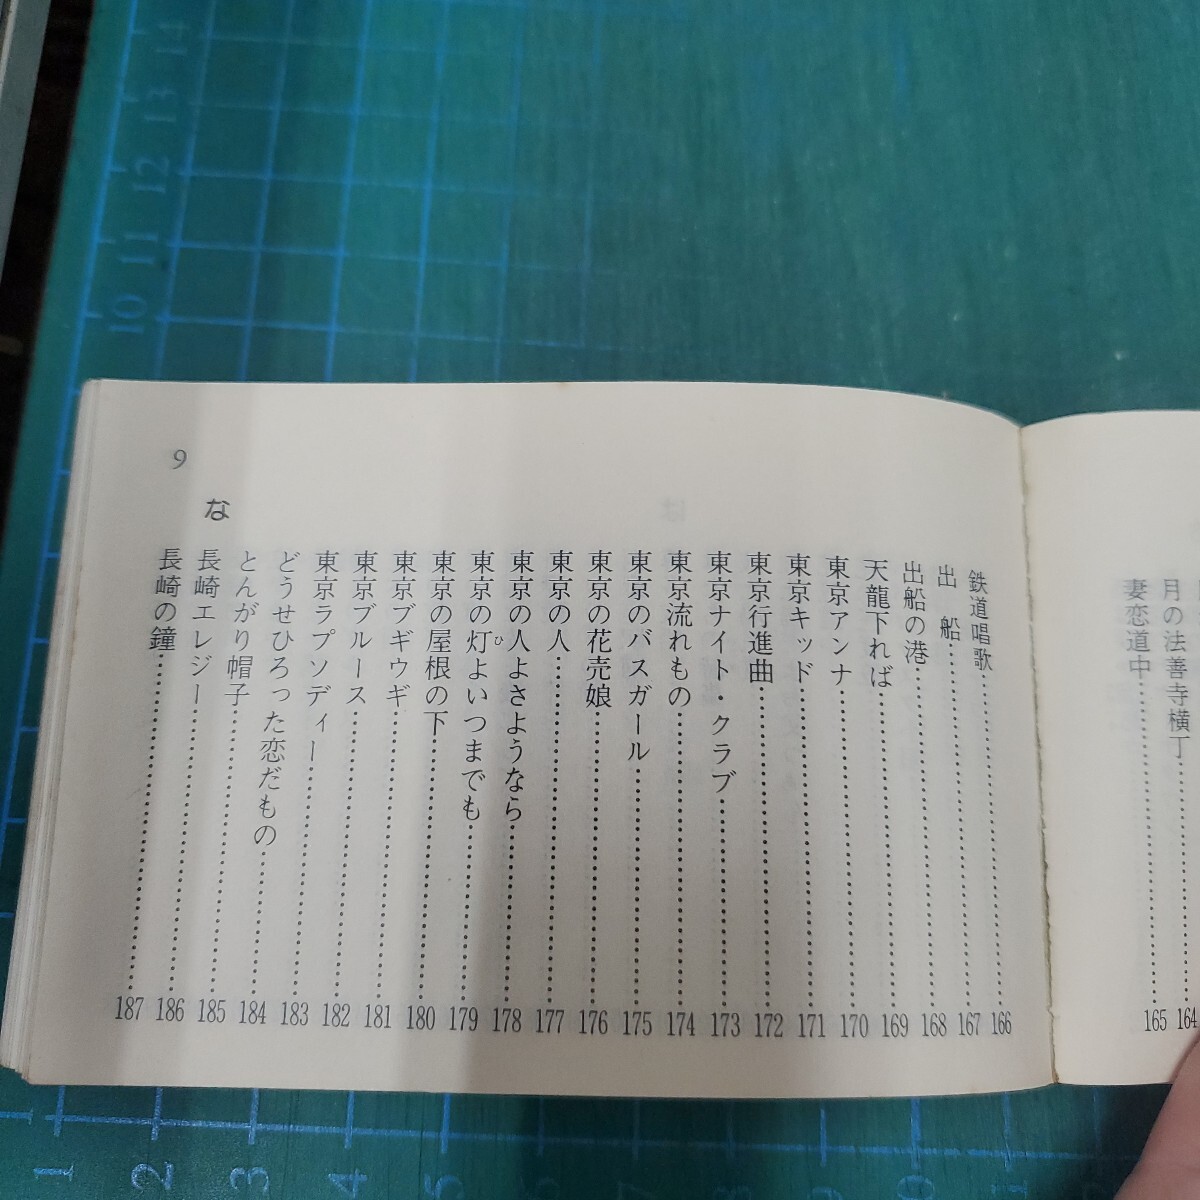 月の法善寺横丁……164
妻恋道中……165
鉄道唱歌……166
出　船……167
出船の港……168
天龍下れば……169
東京アンナ……170
東京キッド……171
東京行進曲……172
東京ナイト・クラブ……173
東京流れもの……174
東京のバスガール……175
東京の花売娘……176
東京の人……177
東京の人よさようなら……178
東京の灯よいつまでも……179
ひ
東京の屋根の下……180
東京ブギウギ……181
東京ブルース……182
東京ラプソディー……183
どうせひろった恋だもの……184
とんがり帽子……185
な
長崎エレジー……186
長崎の鐘……187
9
14
13
12
11
10
1 2 3 4 5 6 7 8 9 10